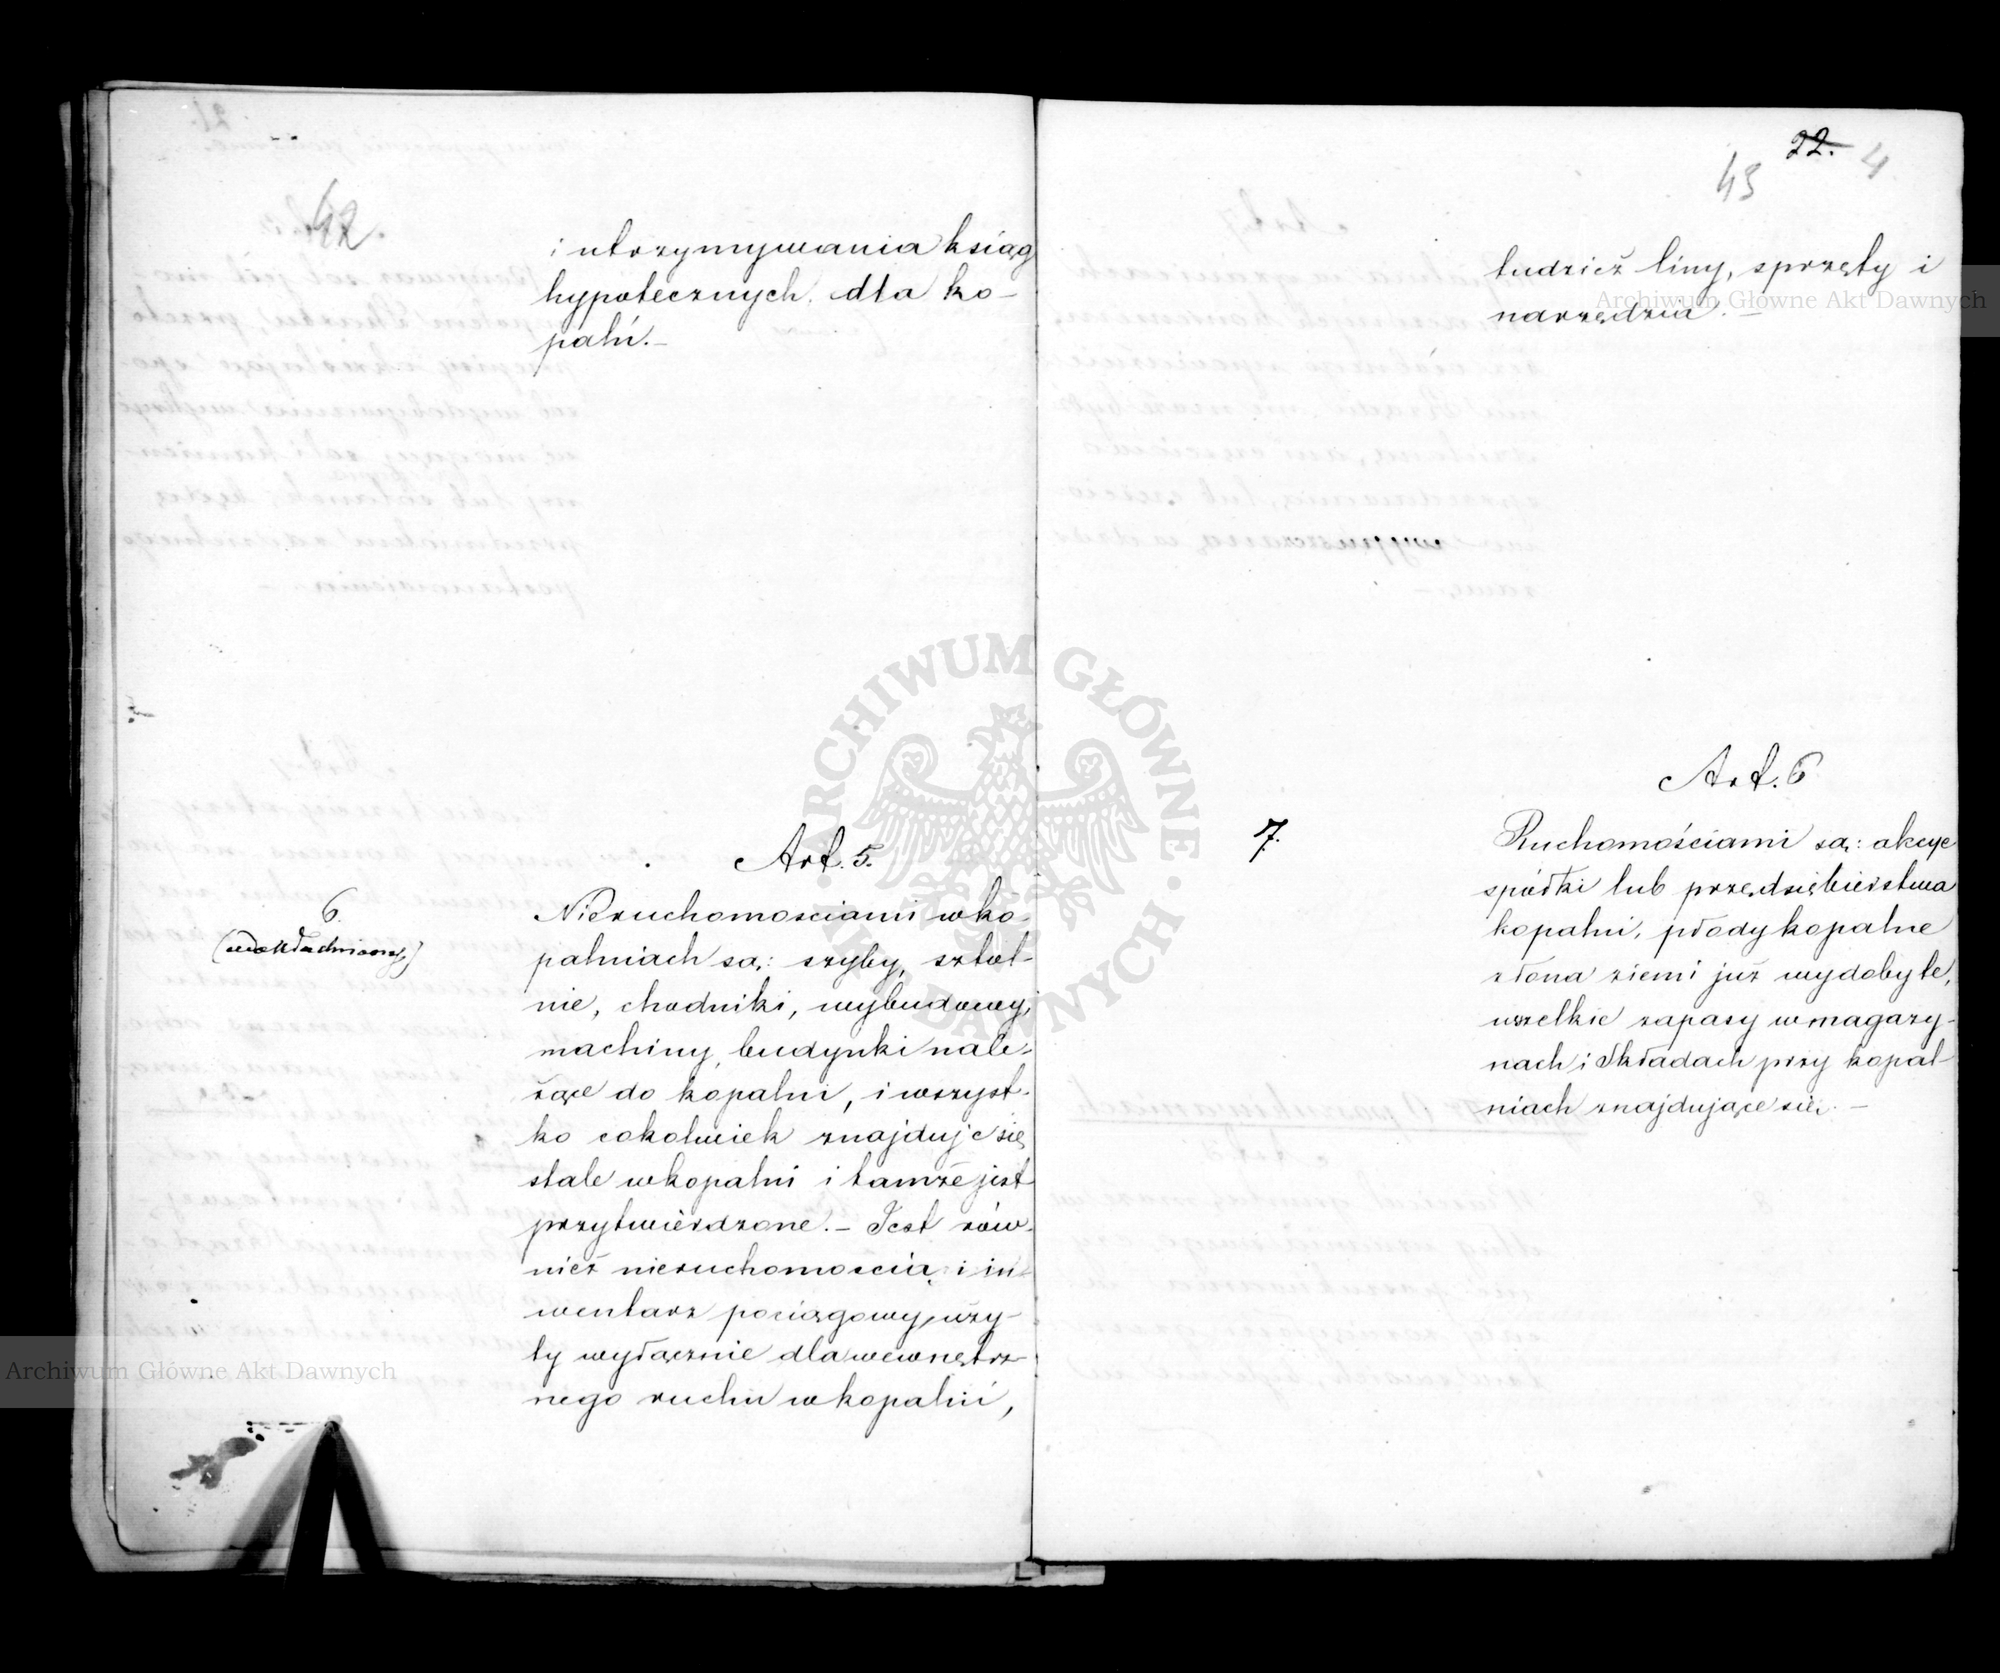 42.
i utrzymywania ksiąg
hypotecznych dla ko-
palń.-
Art. 5.
6.
Nieruchomosciami w ko-
palniach są: szyby, sztol-
nie, chodniki, wybudowy,
machiny, budynki nale-
żące do kopalni, i wszyst-
ko cokolwiek znajduje się
stale w kopalni i tamże jest
przytwierdzone.- Jest rów-
nież nieruchomoscią i in-
wentarz pociągowy, uży-
ty wyłącznie dla wewnętrz-
nego ruchu w kopalni,
22. 4
43
tudzież liny, sprzęty i
narzędzia.-
Art. 6
7.
Ruchomościami są: akcye
spółki lub przedsiębierstwa
kopalni, płody kopalne
z łona ziemi już wydobyte,
wszelkie zapasy w magazy-
nach i składach przy kopal-
niach znajdujące się.-
ARCHIWUM GŁÓWNE AKT DAWNYCH
Archiwum Główne Akt Dawnych
Archiwum Główne Akt Dawnych